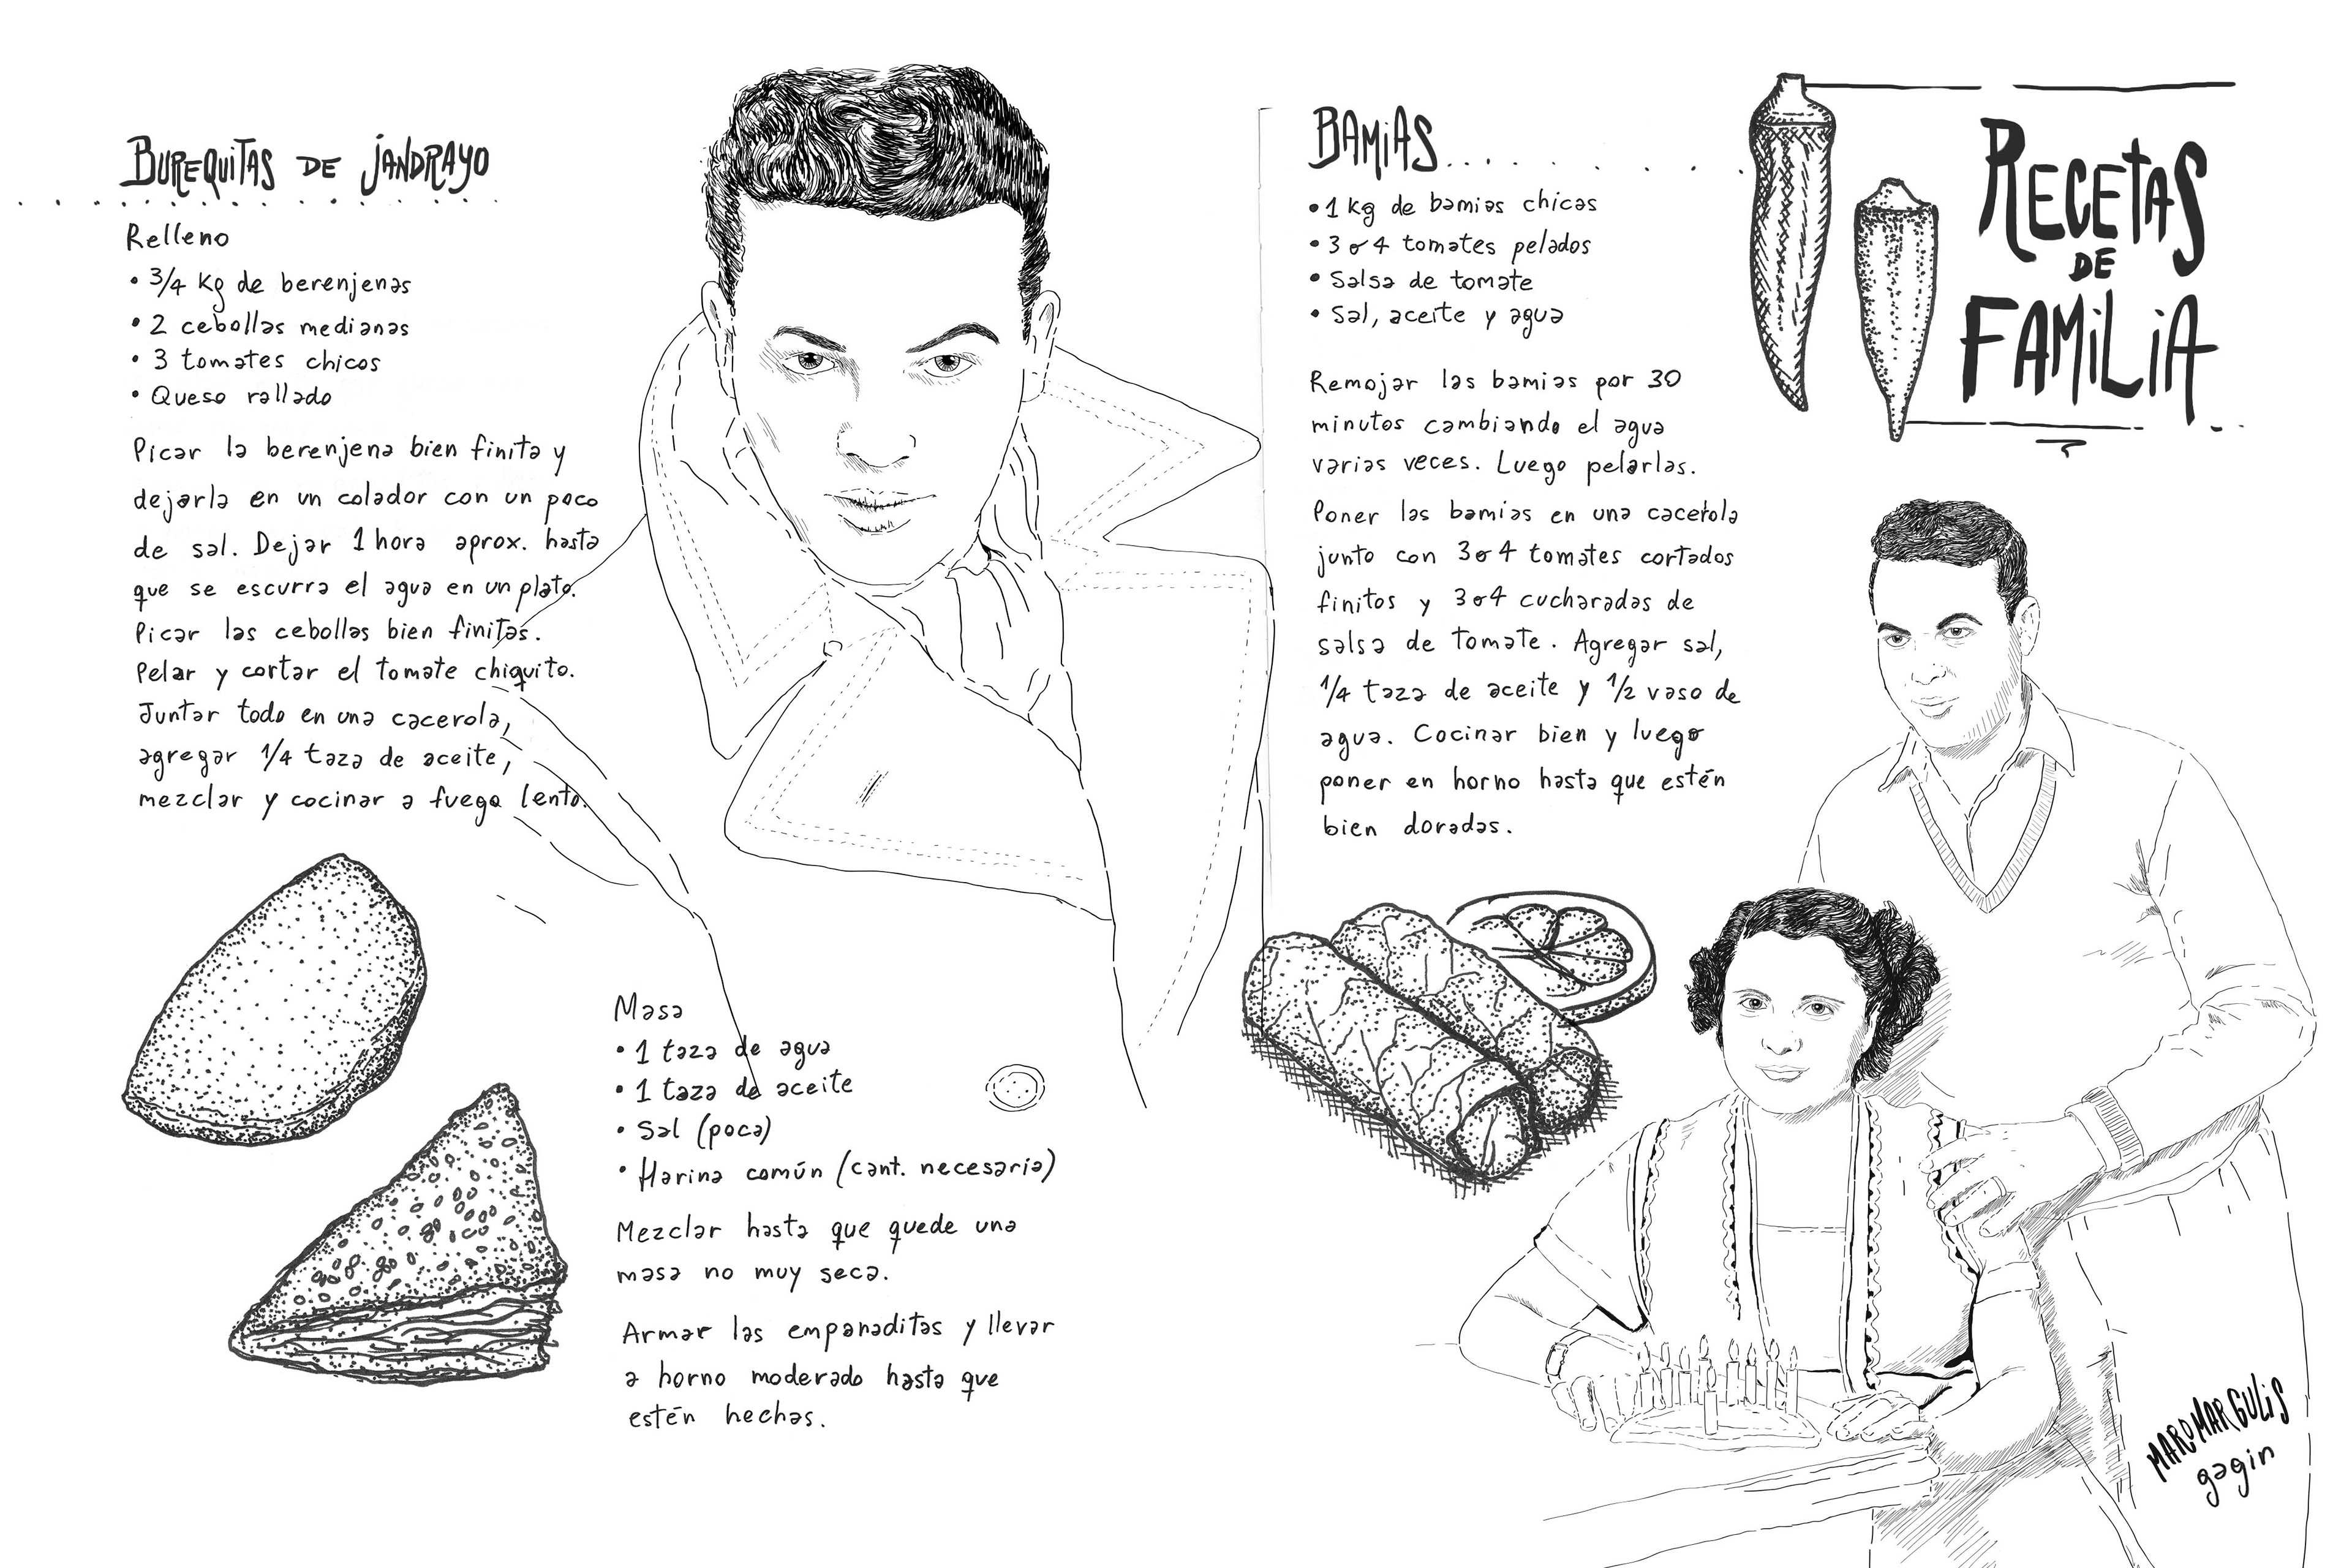 BUREQUITAS DE JANDRAYO
Relleno
• 3/4 Kg de berenjenas
• 2 cebollas medianas
• 3 tomates chicos
• Queso rallado
Picar la berenjena bien finita y
dejarla en un colador con un poco
de sal. Dejar 1 hora aprox. hasta
que se escurra el agua en un plato.
Picar las cebollas bien finitas.
Pelar y cortar el tomate chiquito.
Juntar todo en una cacerola,
agregar 1/4 taza de aceite,
mezclar y cocinar a fuego lento.
Masa
• 1 taza de agua
• 1 taza de aceite
• Sal (poca)
• Harina común (cant. necesaria)
Mezclar hasta que quede una
masa no muy seca.
Armar las empanaditas y llevar
a horno moderado hasta que
estén hechas.
BAMIAS
• 1 kg de bamias chicas
• 3 o 4 tomates pelados
• Salsa de tomate
• Sal, aceite y agua
Remojar las bamias por 30
minutos cambiando el agua
varias veces. Luego pelarlas.
Poner las bamias en una cacerola
junto con 3 o 4 tomates cortados
finitos y 3 o 4 cucharadas de
salsa de tomate. Agregar sal,
1/4 taza de aceite y 1/2 vaso de
agua. Cocinar bien y luego
poner en horno hasta que estén
bien doradas.
RECETAS
DE
FAMILIA
MARO MARGULIS
gagin